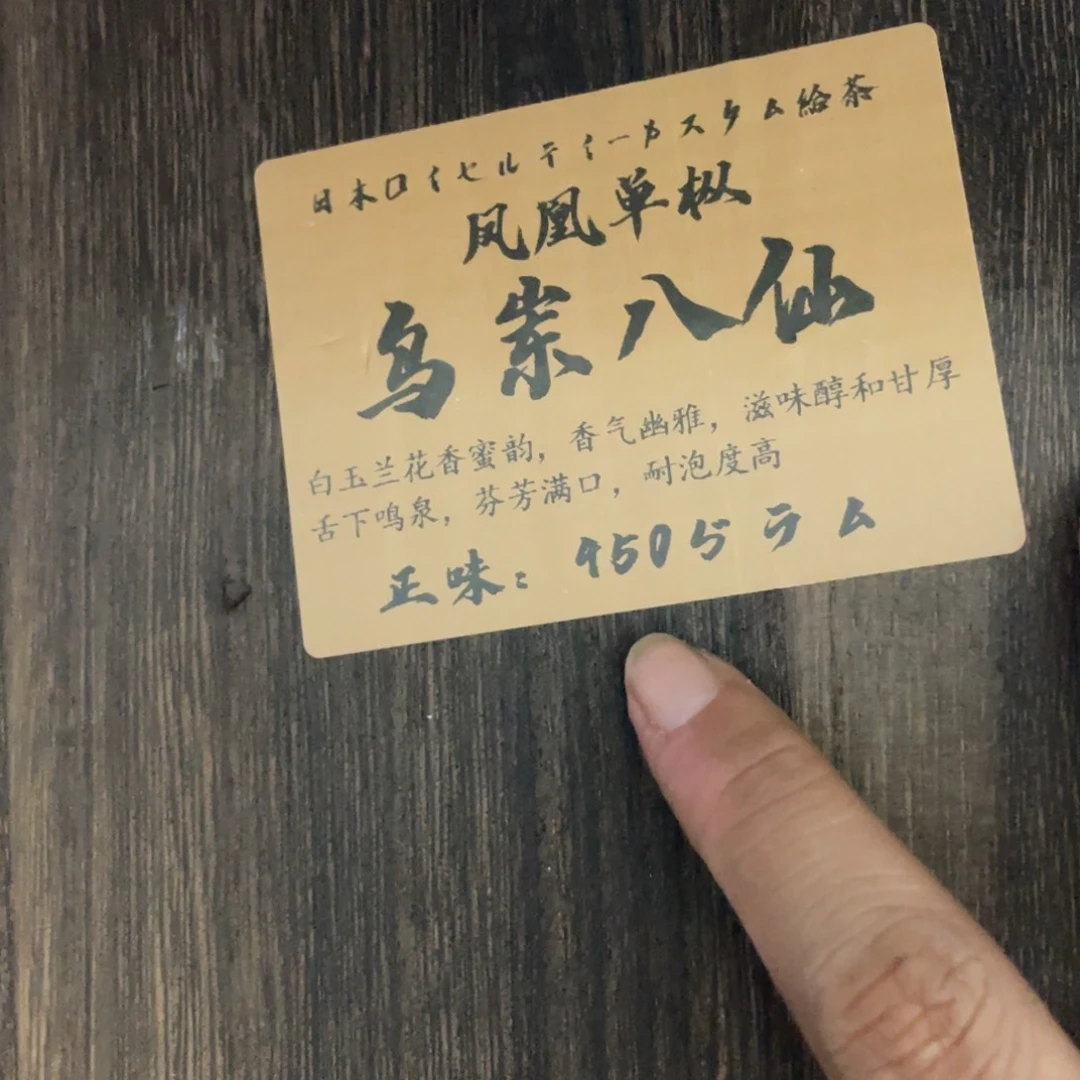 日本ロイセルティーカスタム給茶
凤凰单枞
乌岽八仙
白玉兰花香蜜韵，香气幽雅，滋味醇和甘厚
舌下鸣泉，芬芳满口，耐泡度高
正味：450ぢラム